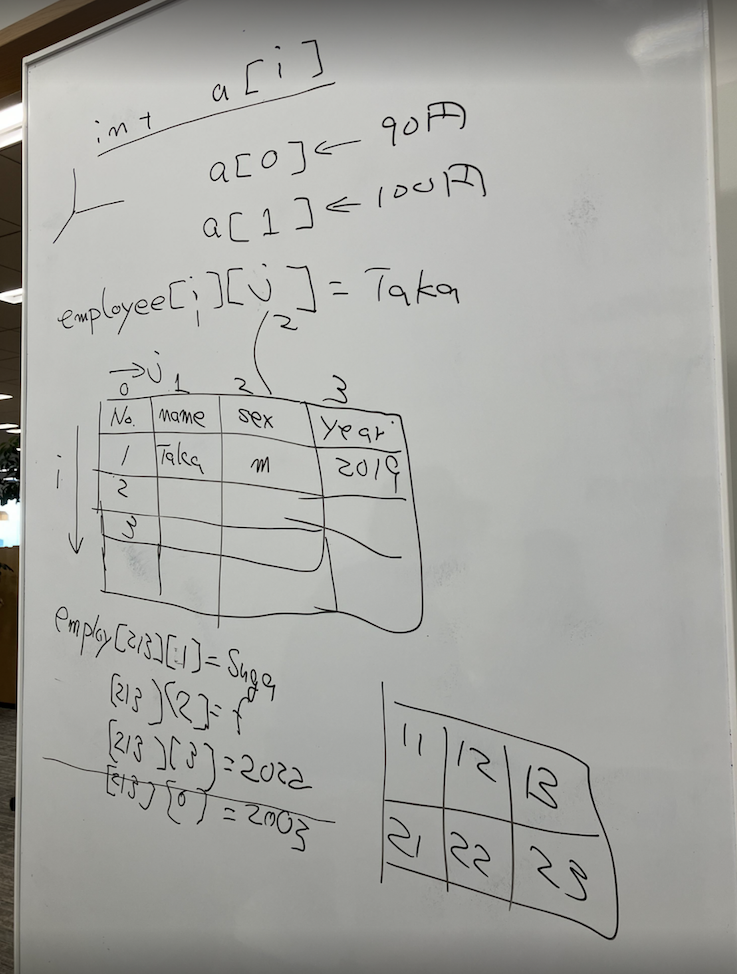 int a[i]
a[0] ← 90円
a[1] ← 100円
employee[i][j] = Taka
2
→ j
0 1 2 3
No. name sex year
i
1 Taka m 2019
2
3
employ[213][1] = Suga
[213][2] = f
[213][3] = 2022
[213][0] = 2003
11 12 13
21 22 23